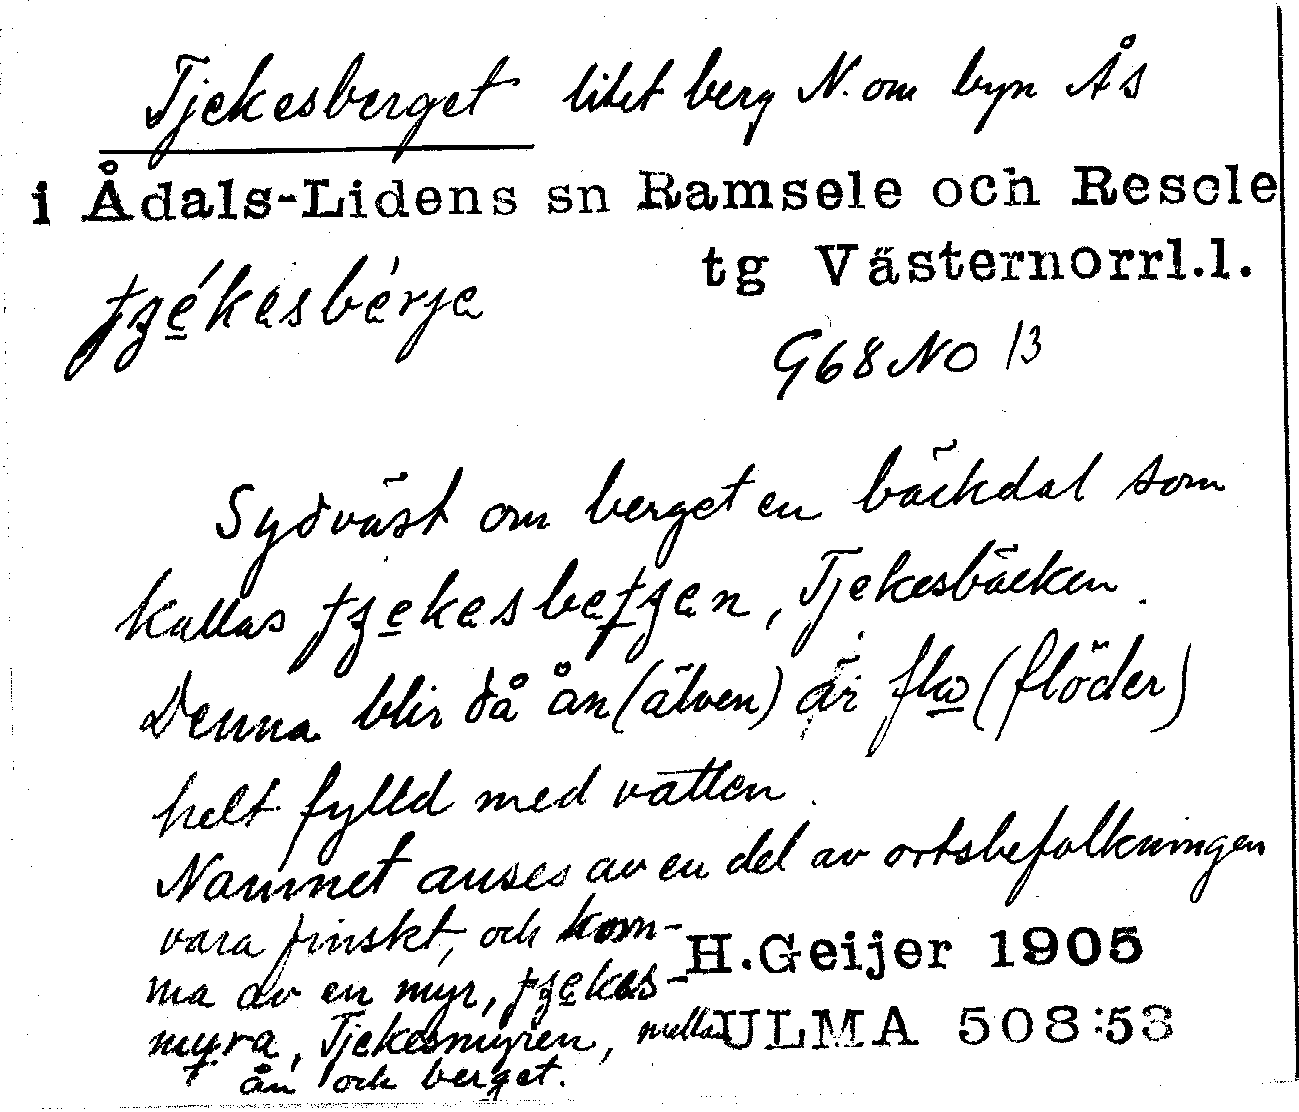 Tjekesberget litet berg N. om byn Ås
i Ådals-Lidens sn Ramsele och Resele
tg Västernorrl.l.
tʒékəsbérjə
G68NO 13
Sydväst om berget en bäckdal som
kallas tʒekəsbetʒən, Tjekesbäcken.
Denna blir då ån (älven) är flω (flöder)
helt fylld med vatten.
Namnet anses av en del av ortsbefolkningen
vara finskt, och kom-
ma av en myr, tʒekəs-
myra, Tjekesmyren, mellan
ån och berget.
H.Geijer 1905
ULMA 508:53